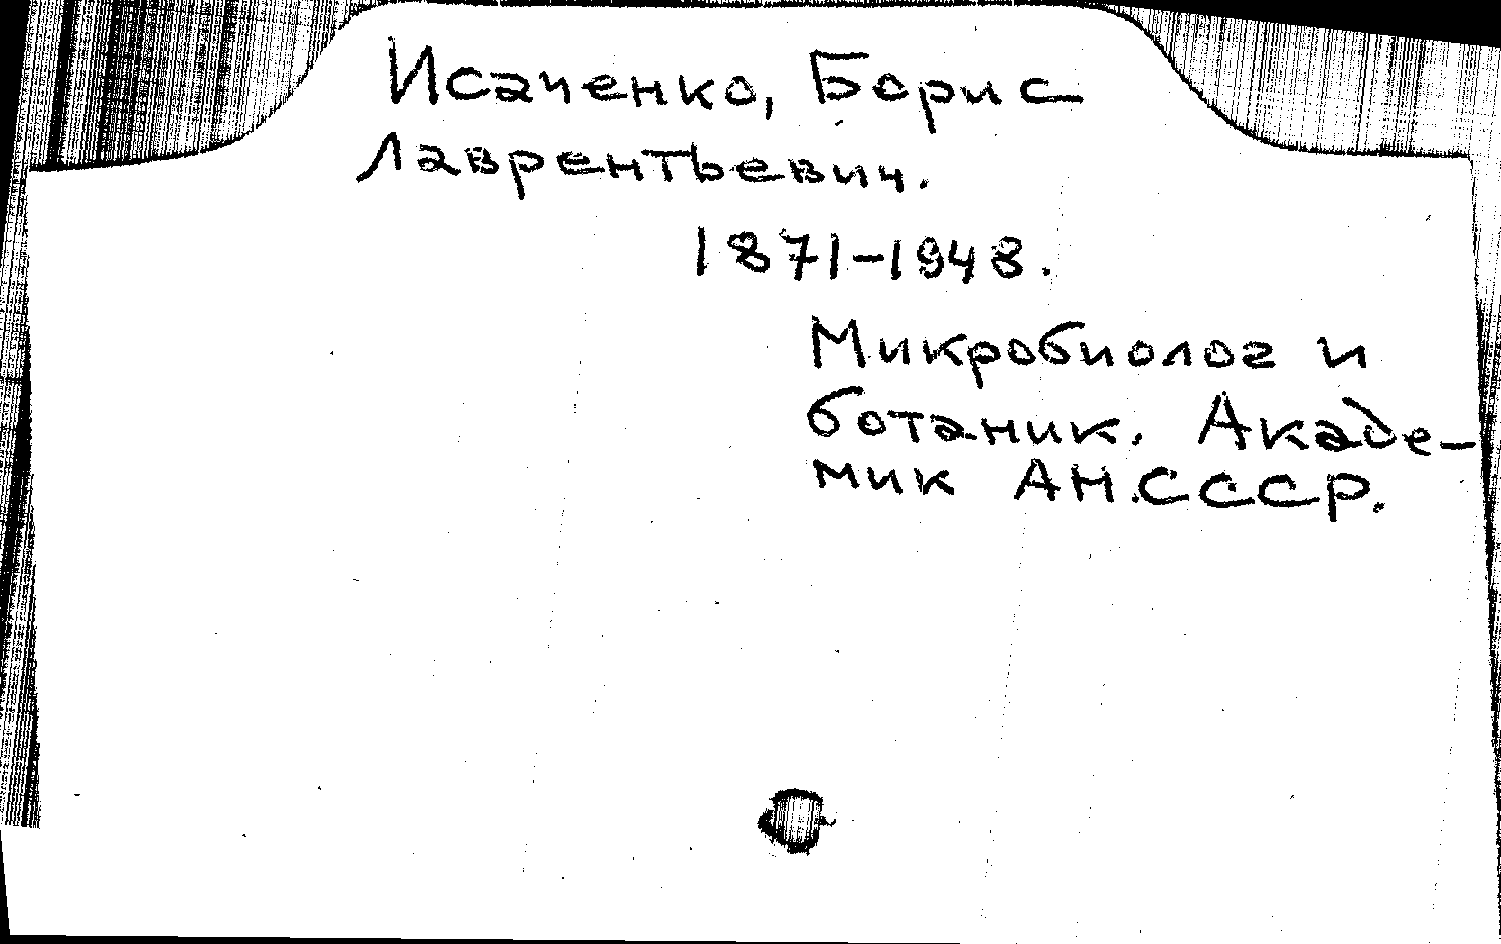 Исаченко, Борис
Лаврентьевич.
1871-1948.
Микробиолог и
ботаник. Акаде-
мик АН.СССР.